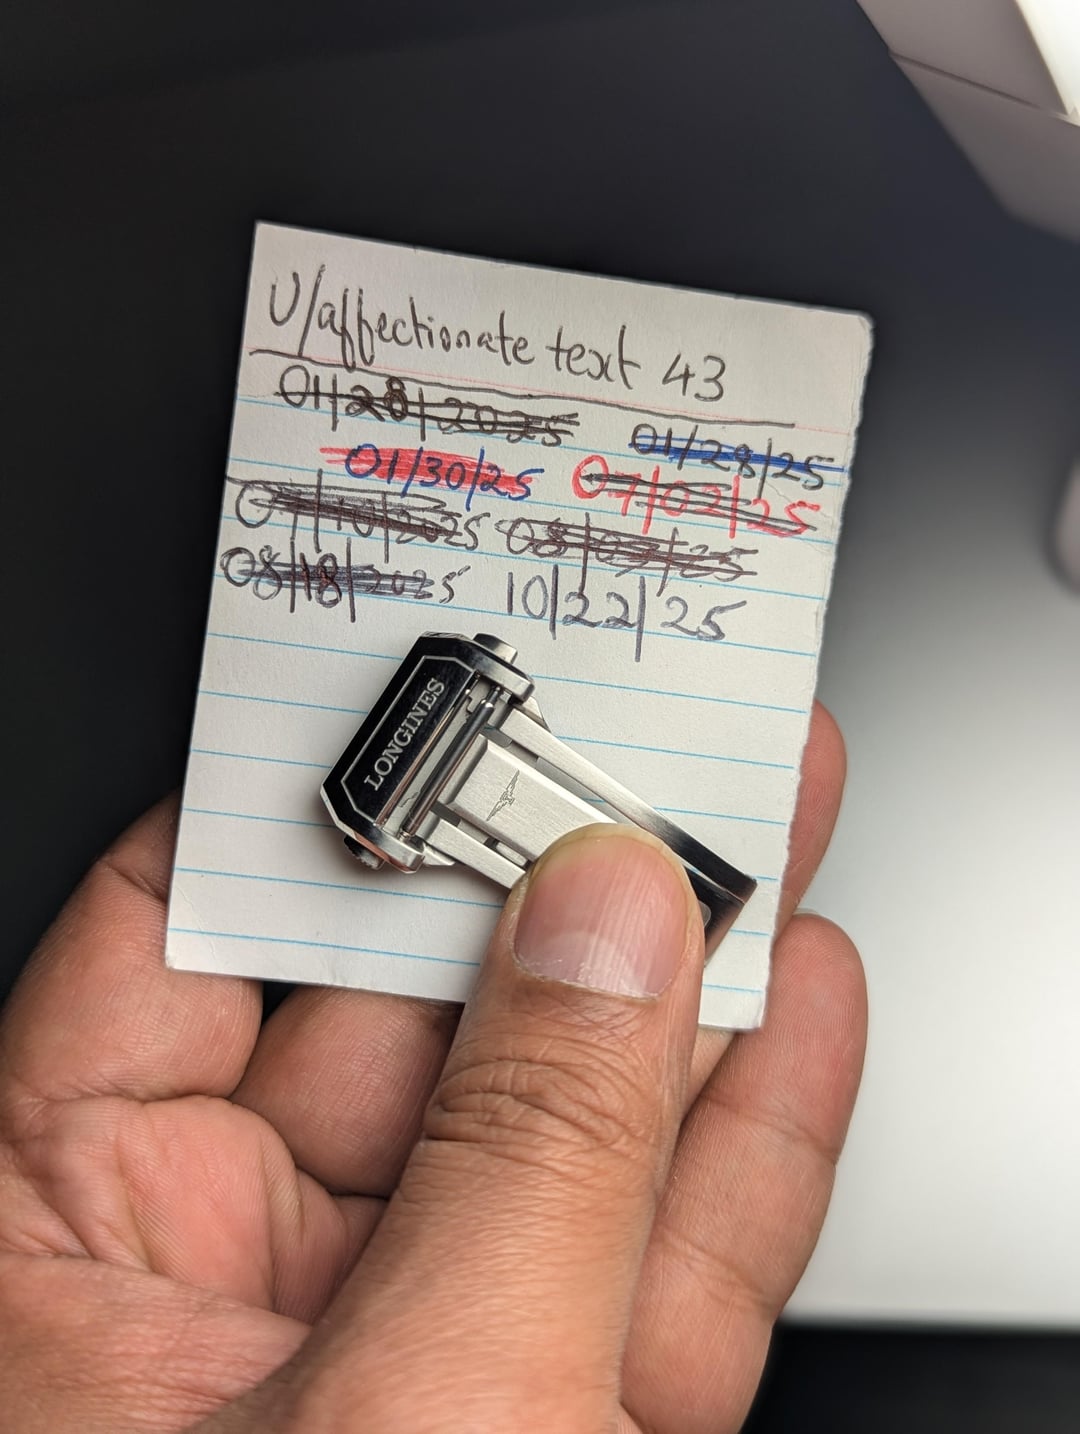 U/affectionate text 43
01/28/2025 01/28/25
01/30/25 07/02/25
07/10/2025 08/07/25
08/18/2025 10/22/25
LONGINES